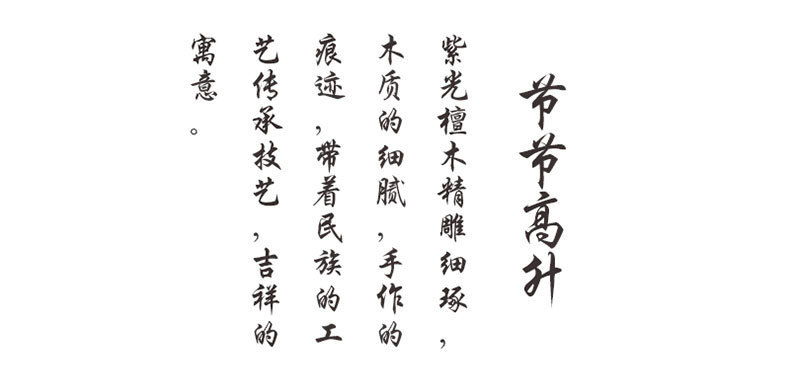 节节高升
紫光檀木精雕细琢，
木质的细腻，手作的
痕迹，带着民族的工
艺传承技艺，吉祥的
寓意。